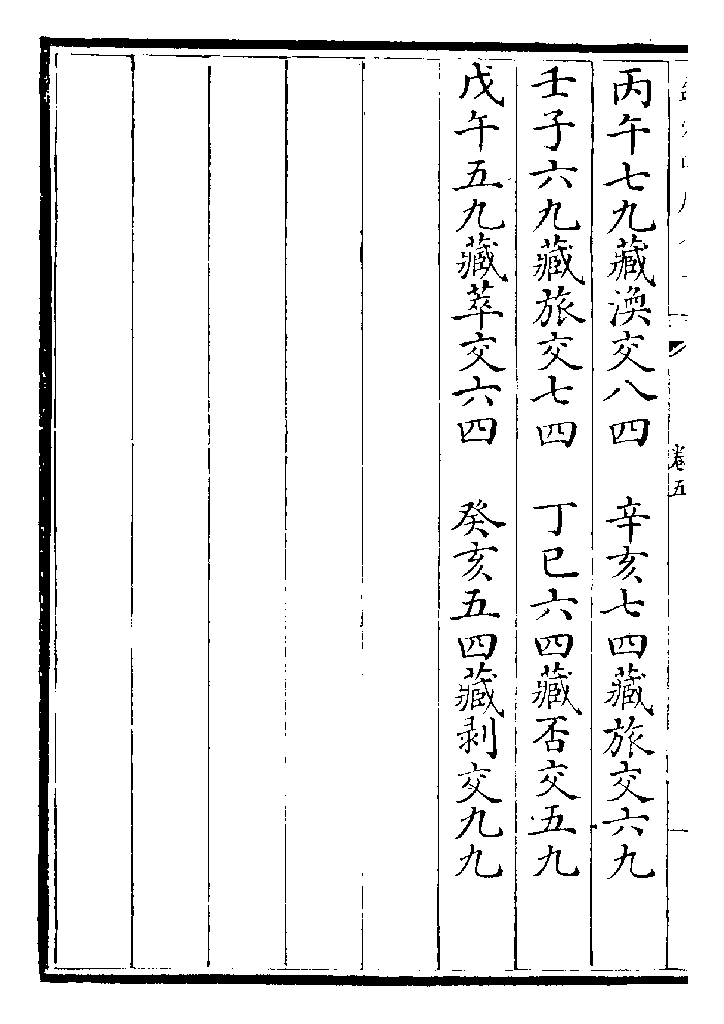 丙午七九藏渙交八四　辛亥七四藏旅交六九
壬子六九藏旅交七四　丁巳六四藏否交五九
戊午五九藏萃交六四　癸亥五四藏剥交九九
卷五